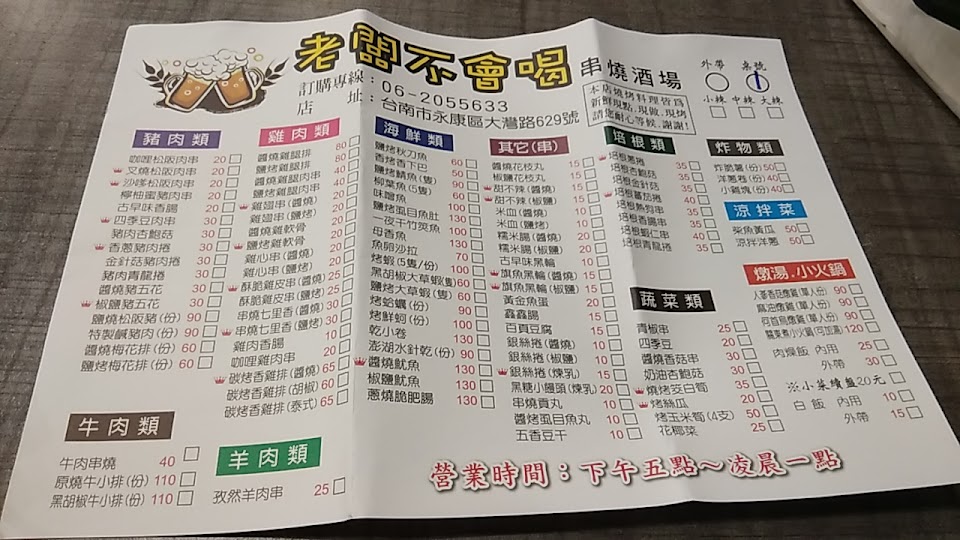 老闆不會喝 串燒酒場
訂購專線：06-2055633
店 址：台南市永康區大灣路629號
本店燒烤料理皆為
新鮮現點、現做、現烤
請您耐心等候，謝謝!
外帶 桌號
小辣 中辣 大辣
豬肉類
咖哩松阪肉串 20
叉燒松阪肉串 20
沙嗲松阪肉串 20
檸柚蜜豬肉串 20
古早味香腸 20
四季豆肉串 30
豬肉杏鮑菇 30
香蔥豬肉捲 30
金針菇豬肉捲 30
豬肉青龍捲 30
醬燒豬五花 30
椒鹽豬五花 30
鹽燒松阪豬(份) 90
特製鹹豬肉(份) 90
醬燒梅花排(份) 60
鹽烤梅花排(份) 60
牛肉類
牛肉串燒 40
原燒牛小排(份) 110
黑胡椒牛小排(份) 110
雞肉類
醬燒雞腿排 80
鹽烤雞腿排 80
醬燒雞腿肉串 40
鹽烤雞腿肉串 40
雞翅串(醬燒) 40
雞翅串(鹽烤) 40
醬燒雞軟骨 30
鹽烤雞軟骨 30
雞心串(醬燒) 30
雞心串(鹽烤) 30
酥脆雞皮串(醬燒) 25
酥脆雞皮串(鹽烤) 25
串燒七里香(醬燒) 30
串燒七里香(鹽烤) 30
雞肉香腸 10
咖哩雞肉串 20
碳烤香雞排(醬燒) 65
碳烤香雞排(胡椒) 60
碳烤香雞排(泰式) 65
羊肉類
孜然羊肉串 25
海鮮類
鹽烤秋刀魚 60
香烤香下巴 50
鹽烤鯖魚(隻) 90
柳葉魚(5隻) 60
味噌魚 60
鹽烤虱目魚肚 130
一夜干竹筴魚 100
母香魚 130
魚卵沙拉 70
烤蝦(5隻/份) 100
黑胡椒大草蝦(隻) 60
鹽烤大草蝦(隻) 60
烤蛤蠣(份) 90
烤鮮蚵(份) 100
乾小卷 130
澎湖水針乾(份) 90
醬燒魷魚 130
椒鹽魷魚 130
蔥燒脆肥腸 130
其它(串)
醬燒花枝丸 15
椒鹽花枝丸 15
甜不辣(醬燒) 15
甜不辣(椒鹽) 15
米血(醬燒) 10
米血(椒鹽) 10
糯米腸(醬燒) 20
糯米腸(椒鹽) 20
古早味黑輪 10
旗魚黑輪(醬燒) 15
旗魚黑輪(椒鹽) 15
黃金魚蛋 20
鑫鑫腸 15
百頁豆腐 15
銀絲捲(醬燒) 15
銀絲捲(椒鹽) 15
銀絲捲(煉乳) 15
黑糖小饅頭(煉乳) 20
串燒貢丸 10
醬燒虱目魚丸 10
五香豆干 10
培根類
培根蔥捲 35
培根杏鮑菇 35
培根金針菇 35
培根蕃茄捲 40
培根熱狗串 35
培根香腸串 35
培根蝦仁串 40
培根青龍捲 35
蔬菜類
青椒串 25
四季豆 20
醬燒香菇串 30
奶油杏鮑菇 30
燒烤茭白筍 35
烤絲瓜 20
烤玉米筍(4支) 50
花椰菜 25
炸物類
炸脆薯(份) 50
洋蔥捲(份) 40
小雞塊(份) 40
涼拌菜
柴魚黃瓜 50
涼拌洋蔥 50
燉湯.小火鍋
人蔘香菇燉雞(單人份) 90
麻油燉雞(單人份) 90
何首烏燉雞(單人份) 90
關東煮小火鍋(可加湯) 120
肉燥飯 內用 25
外帶 30
※小菜續盤20元
白飯 內用 10
外帶 15
營業時間：下午五點～凌晨一點